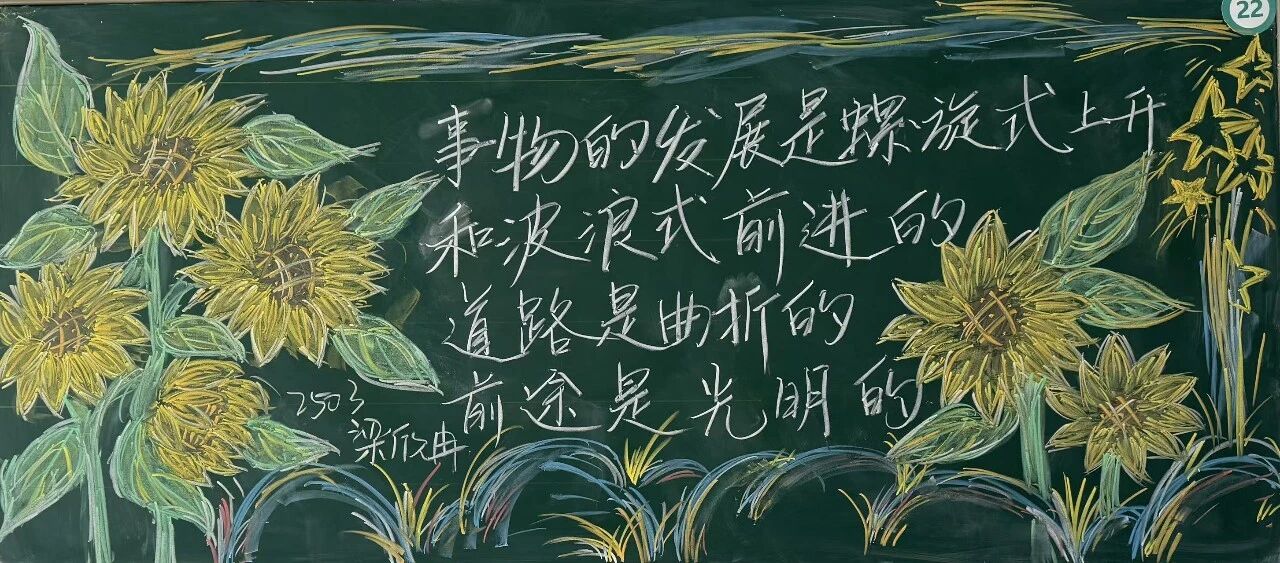 事物的发展是螺旋式上升
和波浪式前进的
道路是曲折的
前途是光明的
2503
梁欣冉
22